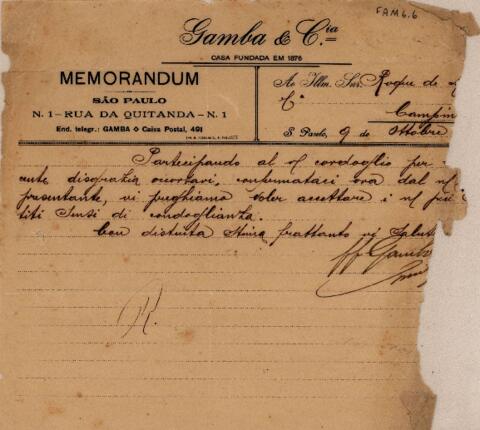 FAM 6.6
Gamba & C.ia
CASA FUNDADA EM 1876
MEMORANDUM
SÃO PAULO
N. 1 - RUA DA QUITANDA - N. 1
End. telegr.: GAMBA ◇ Caixa Postal, 491
Ao Illm. Snr. Roque de
Cª
Campin
S. Paulo, 9 de Ottobre
Participando al cordoglio per
disgrazia occorsavi, confermataci ora dal
presentante, vi preghiamo voler accettare i
titi sensi di condoglianza.
Con distinta stima frattanto vi salut
Gamba
R.